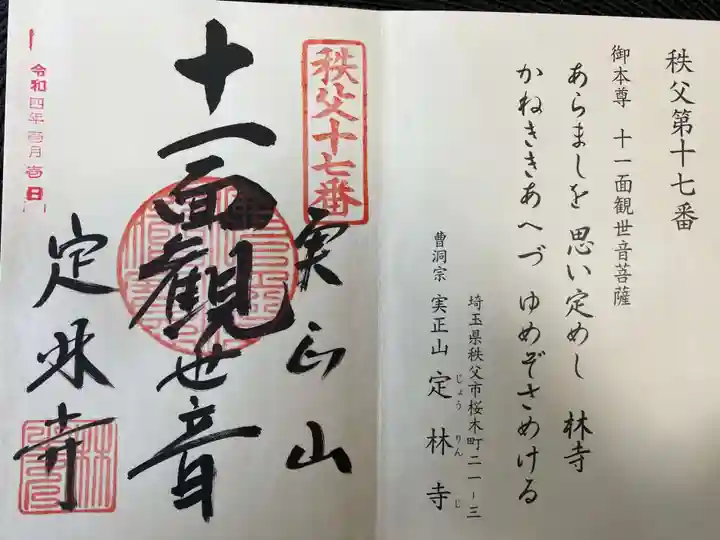 秩父第十七番
御本尊 十一面観世音菩薩
あらましを 思い定めし 林寺
かねききあへづ ゆめぞさめける
埼玉県秩父市桜木町二一ー三
曹洞宗 実正山 定林寺
じょう りん じ
秩父十七番
実正山
十一面観世音
定林寺
令和四年壱月壱日